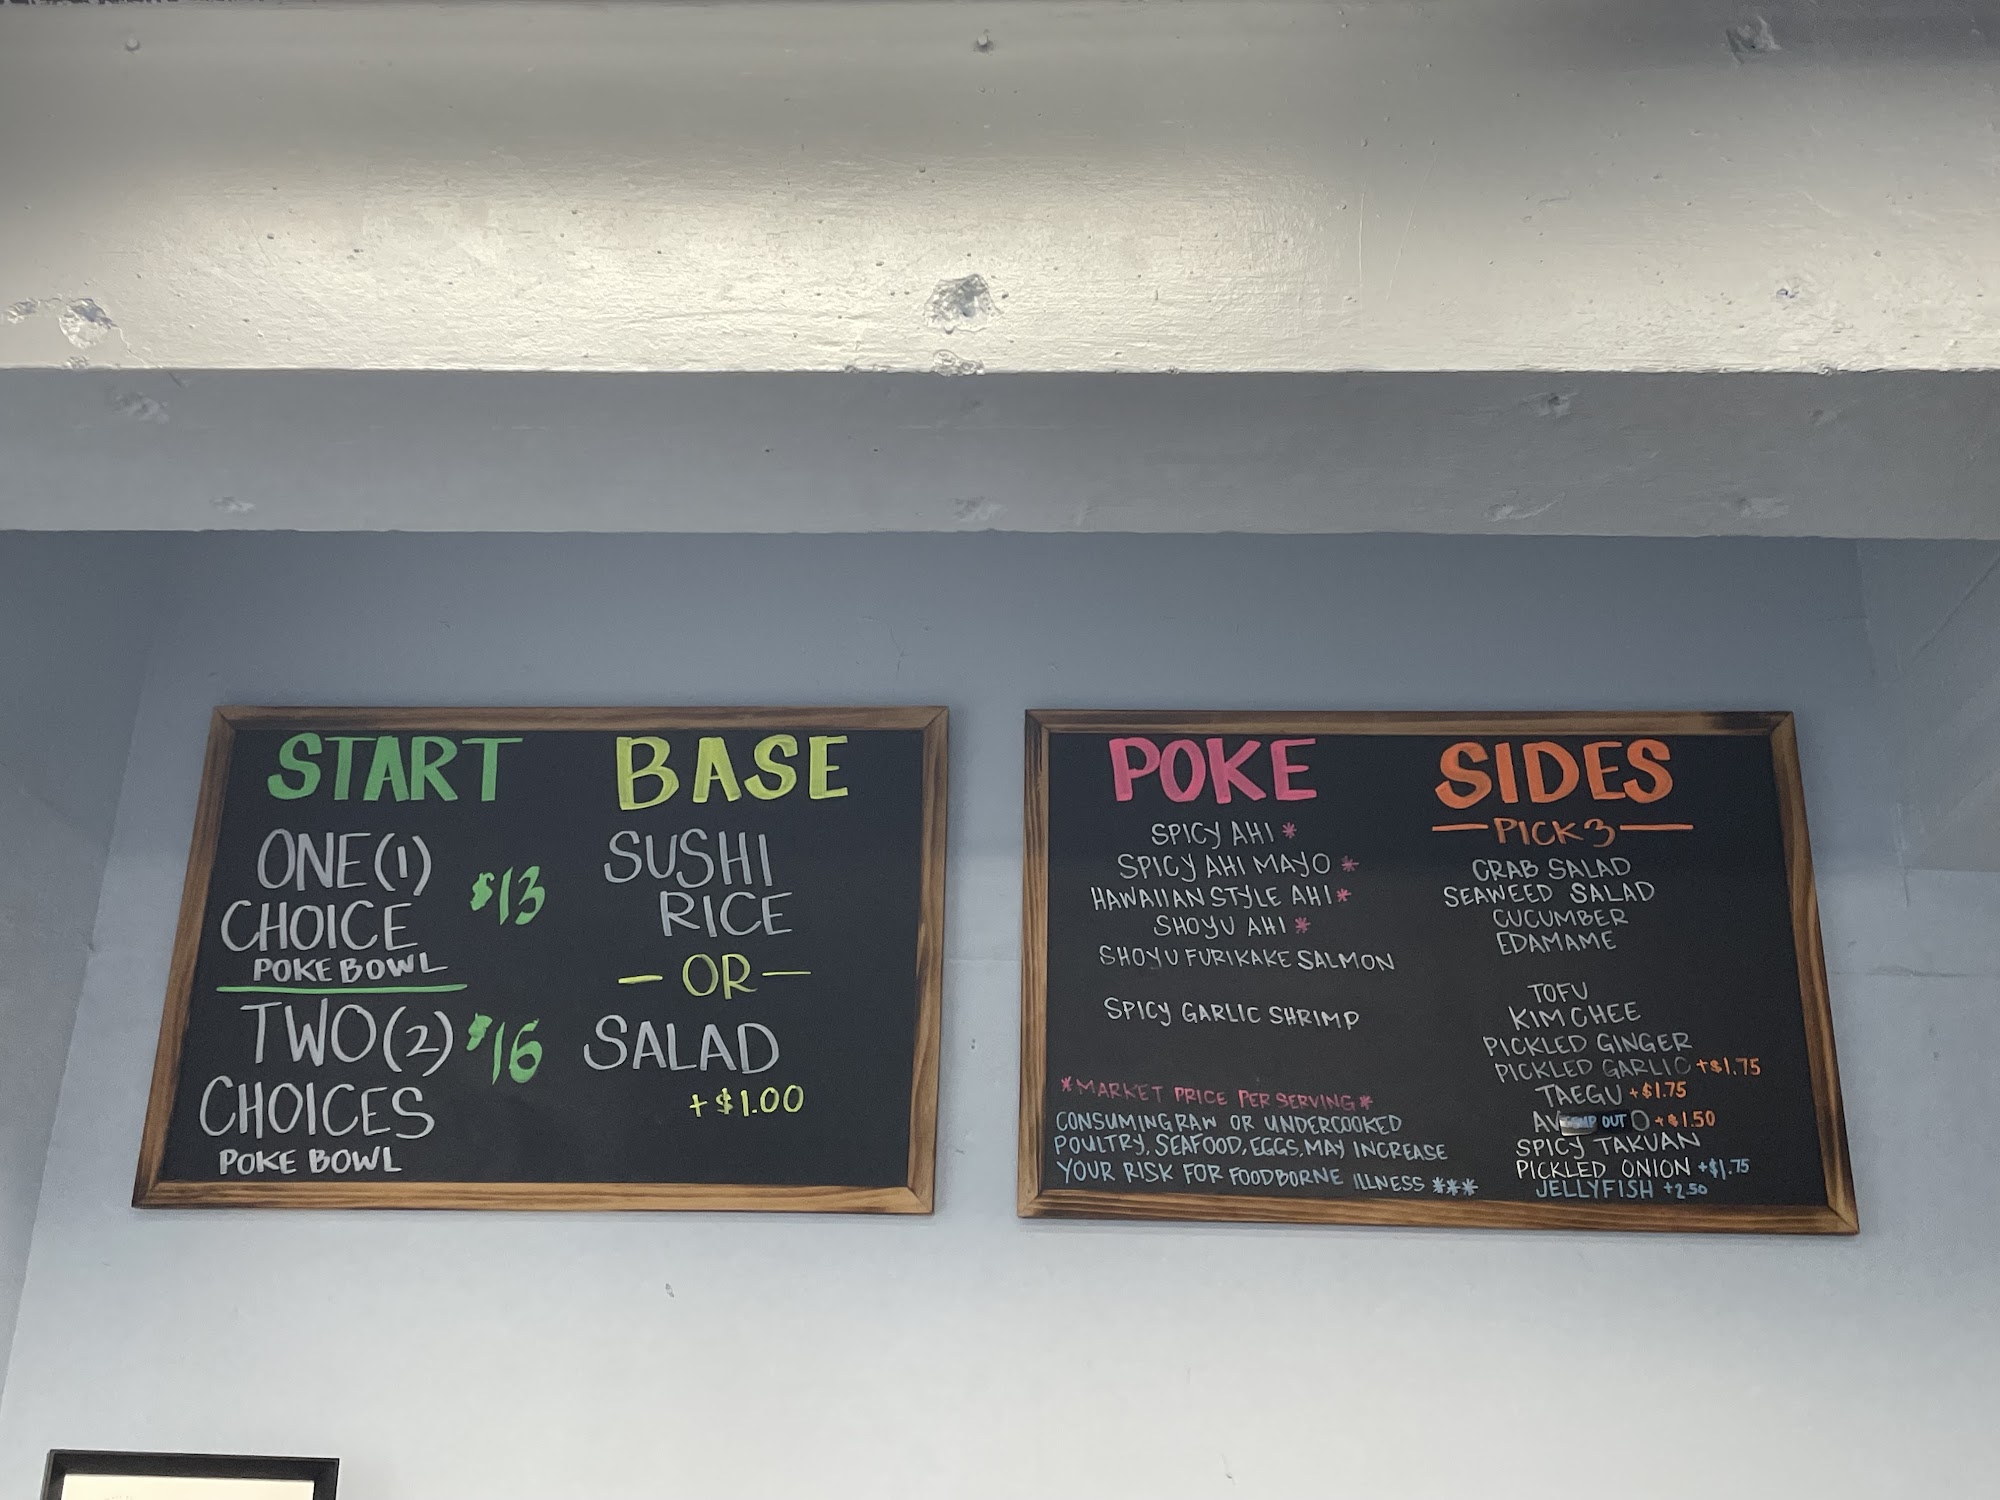 START
ONE (1)
CHOICE
POKE BOWL
$13
TWO (2)
CHOICES
POKE BOWL
$16
BASE
SUSHI
RICE
— OR —
SALAD
+ $1.00
POKE
SPICY AHI *
SPICY AHI MAYO *
HAWAIIAN STYLE AHI *
SHOYU AHI *
SHOYU FURIKAKE SALMON
SPICY GARLIC SHRIMP
*MARKET PRICE PER SERVING*
CONSUMING RAW OR UNDERCOOKED
POULTRY, SEAFOOD, EGGS, MAY INCREASE
YOUR RISK FOR FOODBORNE ILLNESS ***
SIDES
— PICK 3 —
CRAB SALAD
SEAWEED SALAD
CUCUMBER
EDAMAME
TOFU
KIM CHEE
PICKLED GINGER
PICKLED GARLIC +$1.75
TAEGU +$1.75
OUT +$1.50
SPICY TAKUAN
PICKLED ONION +$1.75
JELLYFISH +2.50